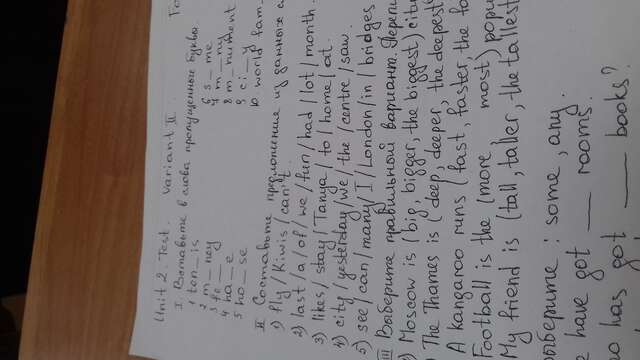 Unit 2. Test. Variant II.
I Вставьте в слова пропущенные буквы.
1 ten_is
2 m_ney
3 fe_
4 ha_e
5 ho_se
6 s_me
7 m_ny
8 m_nument
9 ci_y
10. world fam
II Составьте предложение из данных
1) fly / Kiwis / can't.
2) last / a / of / we / fun / had / lot / month.
3) likes / stay / Tanya / to / home / at.
4) city / yesterday / we / the / centre / saw.
5) see / can / many / I / London / in / bridges
III Выберите правильный вариант. Перепи
) Moscow is (big, bigger, the biggest) city
) The Thames is (deep, deeper, the deepest
A kangaroo runs (fast, faster, the fa
Football is the (more, most) popu
My friend is (tall, taller, the tallest
выберите : some, any.
e have got __ rooms.
ho has got __ books?